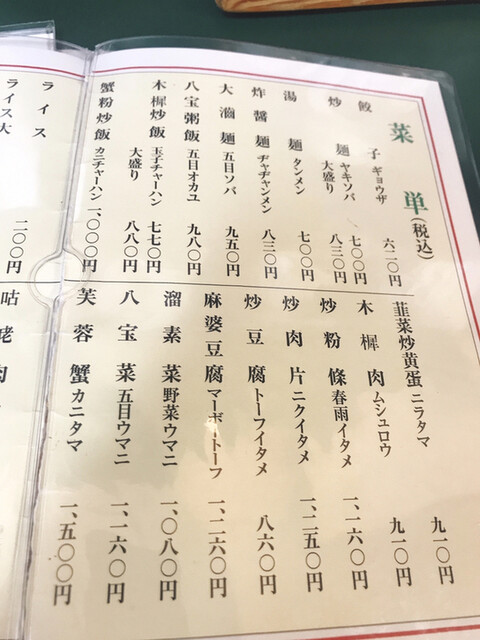 菜単(税込)
餃子 ギョウザ 六二〇円
炒麺 ヤキソバ 七〇〇円
大盛り 八三〇円
湯麺 タンメン 七〇〇円
炸醤麺 ヂャヂャンメン 八三〇円
大滷麺 五目ソバ 九五〇円
八宝粥飯 五目オカユ 九八〇円
木樨炒飯 玉子チャーハン 七七〇円
大盛り 八八〇円
蟹粉炒飯 カニチャーハン 一、〇〇〇円
韮菜炒黄蛋 ニラタマ 九一〇円
木樨肉 ムシュロウ 九一〇円
炒粉條 春雨イタメ 一、一六〇円
炒肉片 ニクイタメ 一、二五〇円
炒豆腐 トーフイタメ 八六〇円
麻婆豆腐 マーボードーフ 一、二六〇円
溜素菜 野菜ウマニ 一、〇八〇円
八宝菜 五目ウマニ 一、一六〇円
芙蓉蟹 カニタマ 一、五〇〇円
ライス
ライス大 二〇〇円
咕咾肉